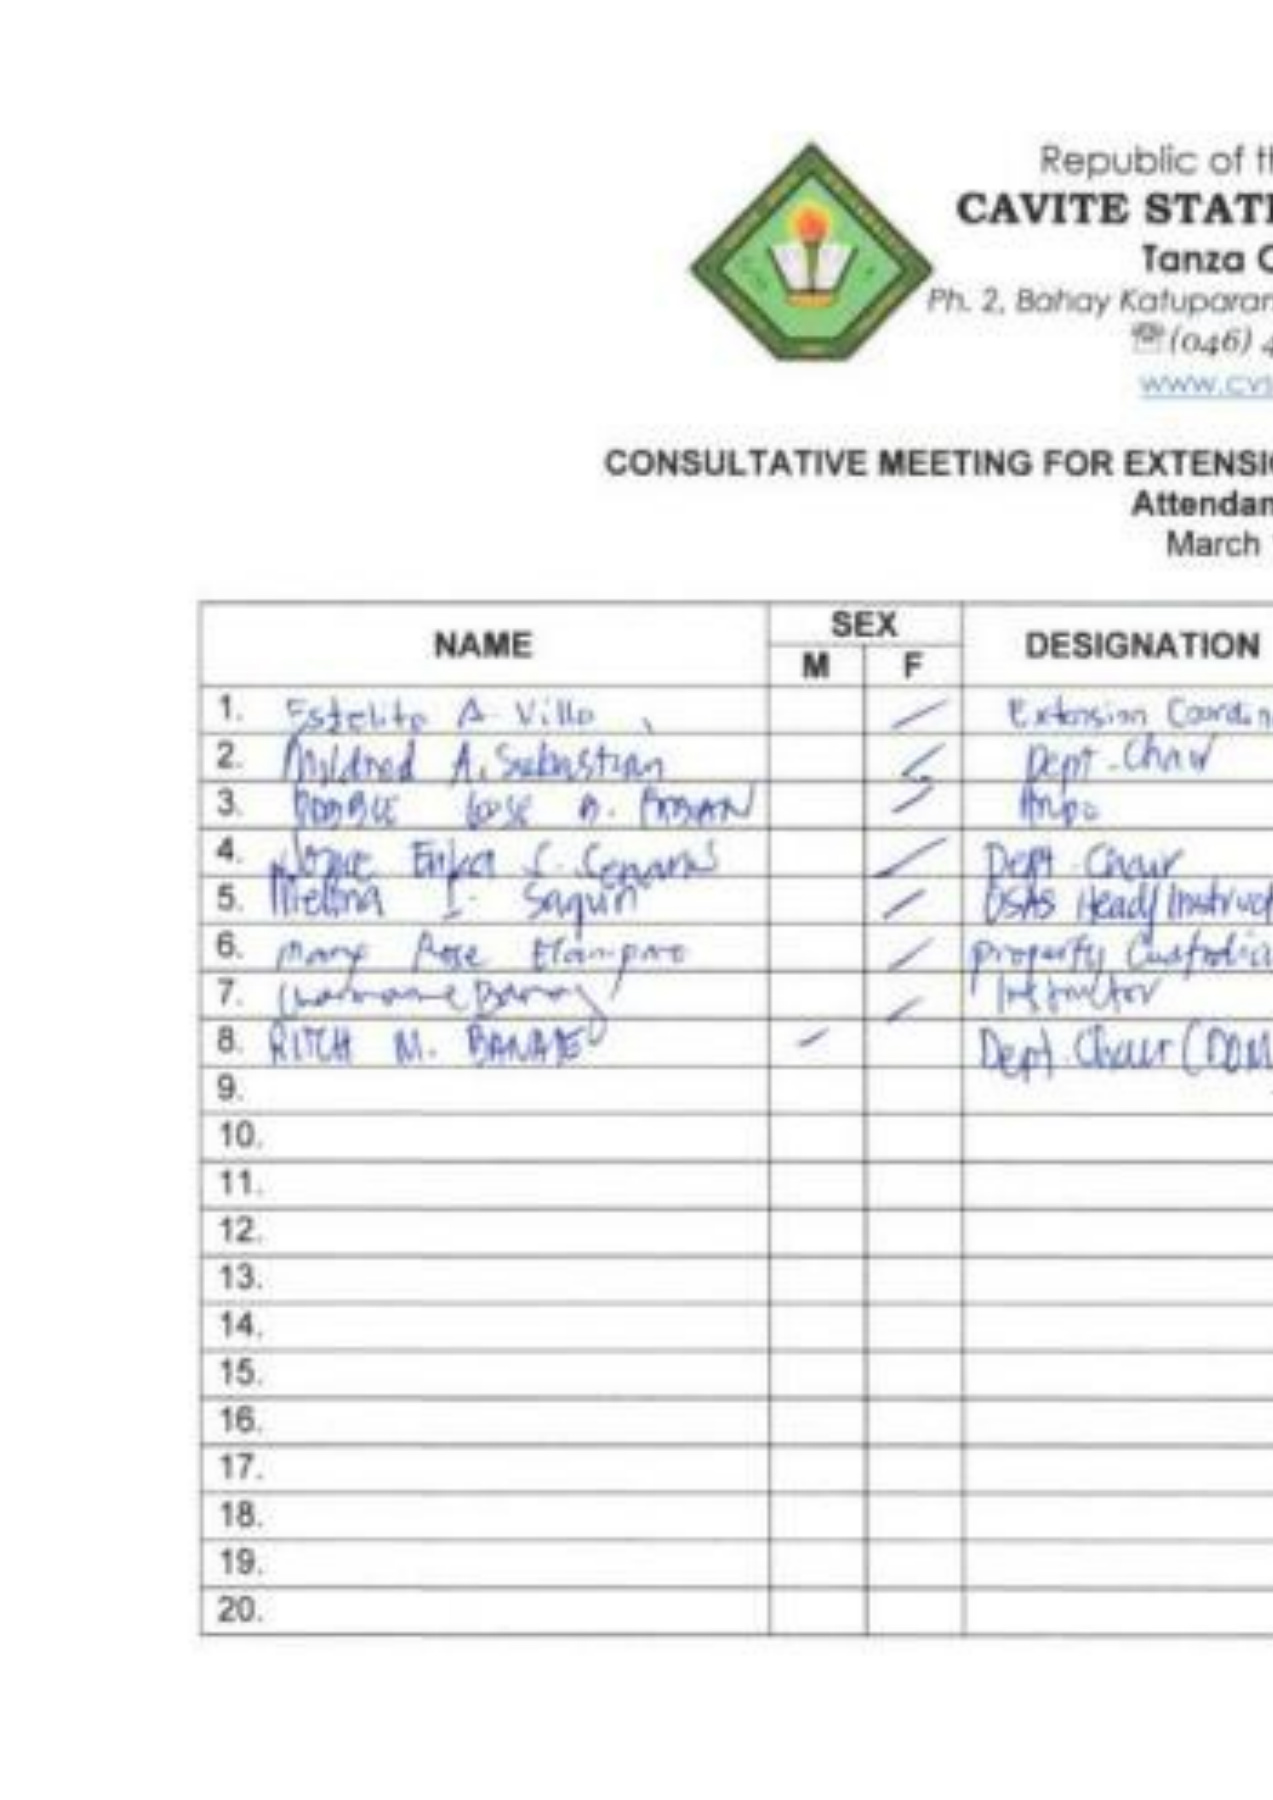 Republic of th
CAVITE STATE
Tanza C
Ph. 2, Bahay Katuparan
(046) 4
www.cvs
CONSULTATIVE MEETING FOR EXTENSIO
Attendan
March
NAME SEX DESIGNATION
M F
1. Estelita A. Villa Extension Coordin
2. Mildred A. Sebastian Dept. Chair
3. ROSE
4. Erika C. Dept. Chair
5. Melina Saquin OSAS Head/Instruct
6. Mary Rose Property Custodia
7. Charmaine Instructor
8. RITCH M. Dept. Chair (DOM
9.
10.
11.
12.
13.
14.
15.
16.
17.
18.
19.
20.